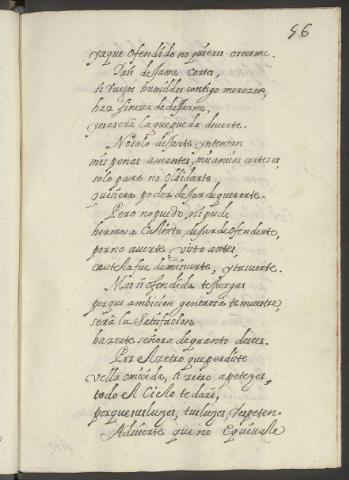 56
ya que ofendido no quieres creerme.
Pan dessame corte,
si ruegos humildes contigo merecen,
haz fineza de dessarme,
y essa será la que pueda deverte.
No solo dessarte yntentan
mis penas amantes, mis ansias corteses,
solo para no olbidarte
quisiera poder dessar de quererte.
Pero no puedo, ni pude
hermosa Calisto, dessar de ofenderte,
por no averte visto antes,
cautela fue de mi suerte, y tu suerte.
Mas si ofendida te jusgas
porque ambicion generosa te muestre,
será la satisfacion
hazerte señora de quanto deses.
Por el zetro que perdiste
vella omicida, si zetro apeteges,
todo el Cielo te daré,
porque sus luzes, tus luzes, respeten.
Advierte que no equivale